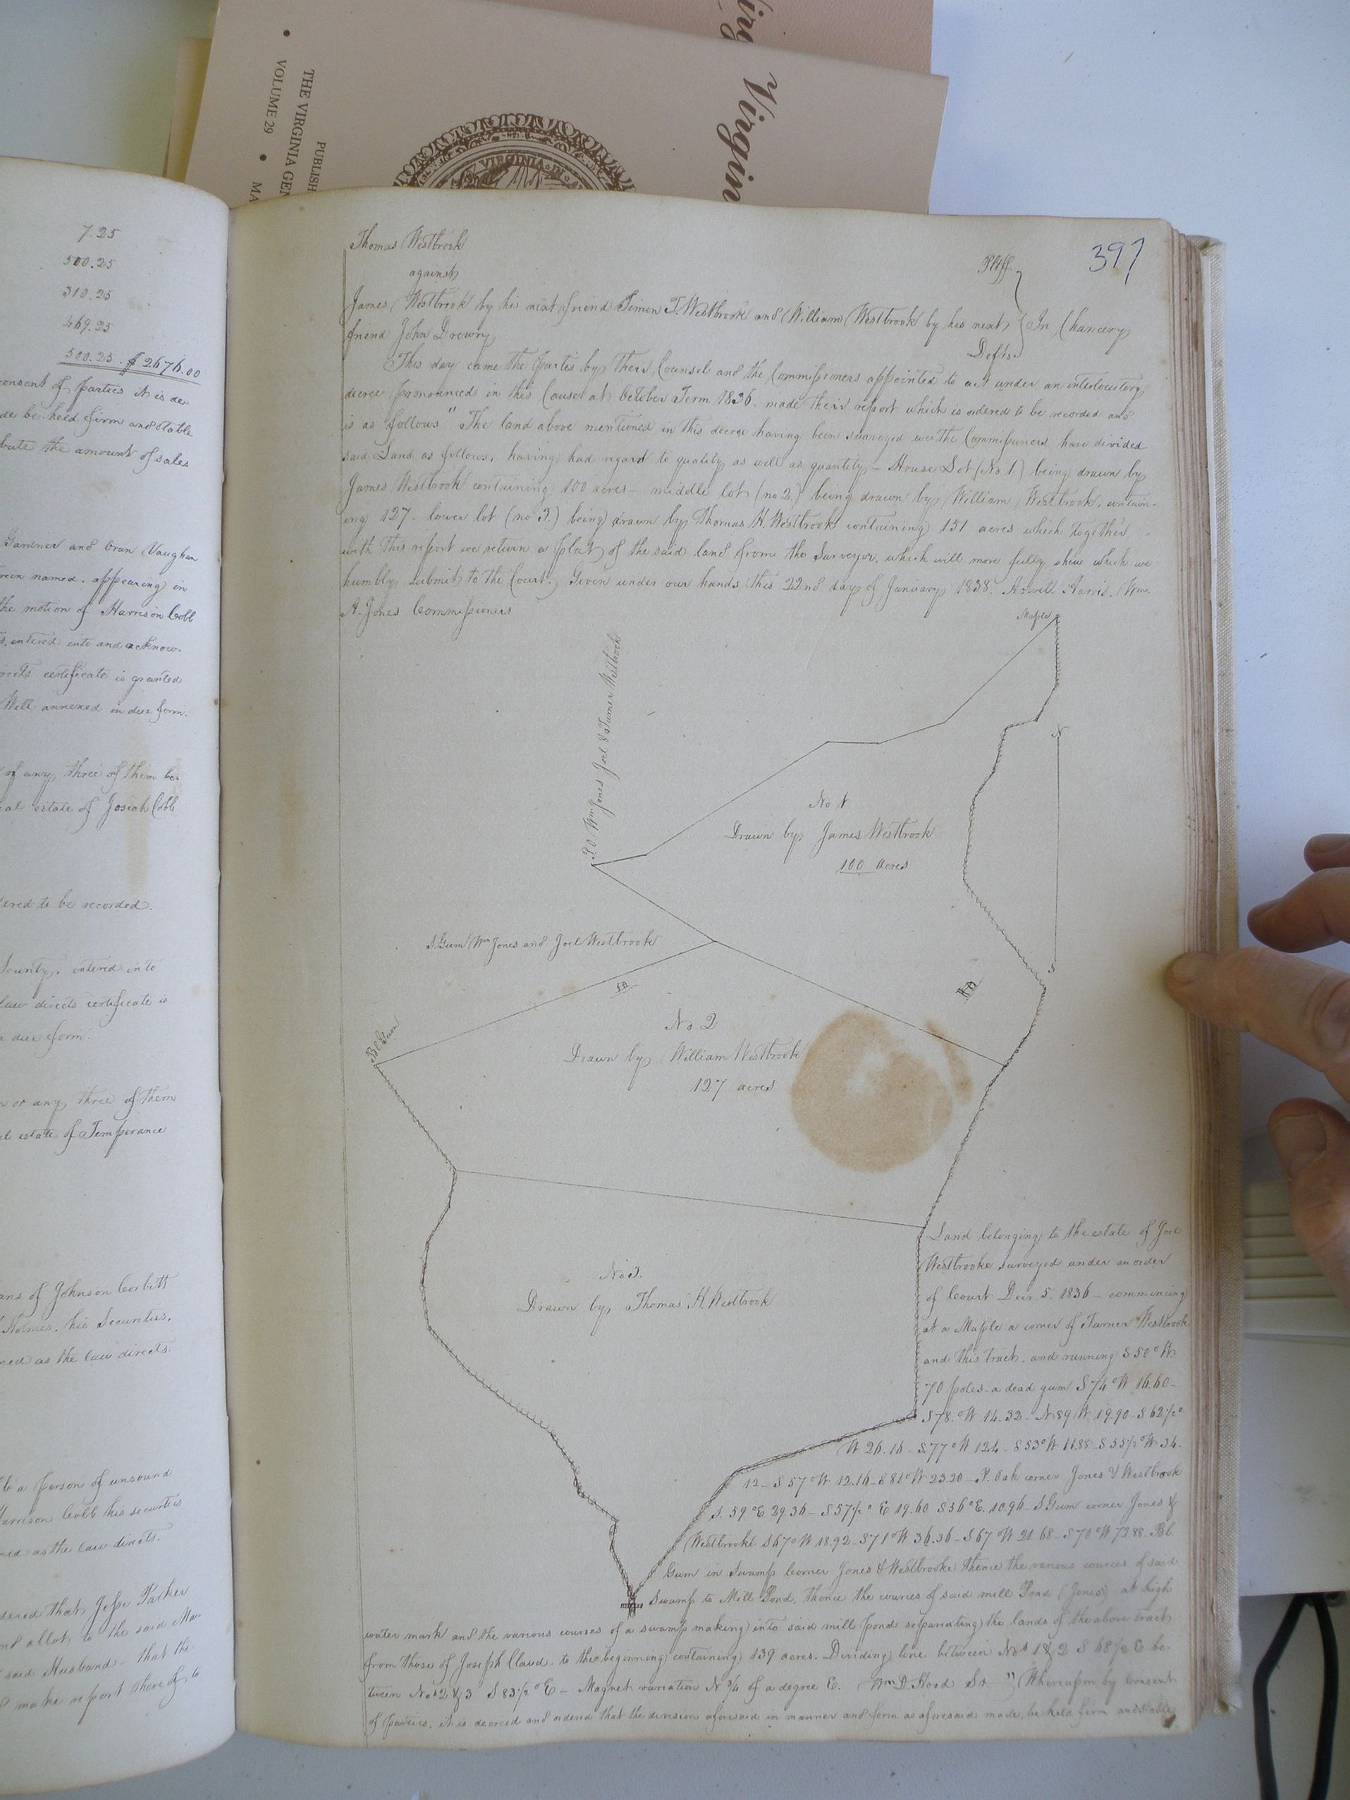 Virgin
THE VIRGINIA GEN
VOLUME 29 • MA
PUBLISH
VIRGINIA
7.25
500.25
310.25
469.25
500.25. $2676.00
consent of parties it is de-
de be held firm and stable
bute the amount of sales
Gardner and Oran Vaughan
rein named. appearing in
the motion of Harrison Cobb
s, entered into and acknow-
rects certificate is granted
Will annexed in due form.
of any three of them be-
al estate of Josiah Cobb
ered to be recorded.
County, entered into
law directs certificate is
n due form.
n or any three of them
al estate of Temperance
ans of Johnson Corbitt
Holmes, his Securities,
med as the law directs.
to a person of unsound
Harrison Cobb his securities
med as the law directs.
dered that Jesse Parker
nd allot to the said Ma-
said Husband - that the
& make report thereof to
397
Thomas Westbrook Pltff.
against
James Westbrook by his next friend Simon T. Westbrook and William Westbrook by his next In Chancery
friend John Drewry Defts.
This day came the parties by their Counsel and the Commissioners appointed to act under an interlocutory
decree pronounced in this Cause at October Term 1836. made their report which is ordered to be recorded and
is as follows "The land above mentioned in this decree having been surveyed we the Commissioners have divided
said Land as follows, having had regard to quality as well as quantity - House Lot (No 1) being drawn by
James Westbrook containing 100 acres - middle lot (no 2.) being drawn by William Westbrook, contain-
ing 127. lower lot (no 3.) being drawn by Thomas H. Westbrook containing 131 acres which together
with this report we return a plat of the said land from the Surveyor, which will more fully shew which we
humbly submit to the Court. Given under our hands this 22nd day of January 1838. Harris, Wm.
A. Jones Commissioners
Maple
N
P.O. Wm Jones Joel & Turner Westbrook
No 1
Drawn by James Westbrook
100 acres
S
S. Gum Wm Jones and Joel Westbrook
Bl Gum
No 2
Drawn by William Westbrook
127 acres
No 3.
Drawn by Thomas H. Westbrook
Land belonging to the estate of Joel
Westbrooke surveyed under an order
of Court Decr 5. 1836 - commencing
at a Maple a corner of Turner Westbrook
and this tract. and running S 50° W
70 poles - a dead gum S 74° W 16.60 -
S 78. W 14.32 - N 89 W 19.90 - S 62½°
W 26.16 - S 77° W 124 - S 53° W 11.88 - S 55½° W 34.
12 - S 57° W 12.16 - S 81° W 23.20 - P. Oak corner Jones & Westbrook
S. 59° E 29.36 - S 57½° E 19.60 S 56° E. 10.96 - S Gum corner Jones &
Westbrooke S 67° W 18.92 - S 71° W 36.36 - S 67° W 21.68 - S 70° W 72.88. Bl.
Gum in Swamp Corner Jones & Westbrooke thence the various courses of said
Swamp to Mill Pond, thence the courses of said mill Pond (Jones) at high
water mark and the various courses of a swamp making into said mill pond separating the lands of the above tract
from those of Joseph Claud. to the beginning containing 439 acres. Dividing line between Nos 1 & 2 S 68½ E be-
tween Nos 2 & 3 S 83½° E - Magnet variation N ¾ of a degree E. Wm D. Hood Sr. " Whereupon by consent
of parties, it is decreed and ordered that the division aforesaid in manner and form as aforesaid made, be held firm and stable